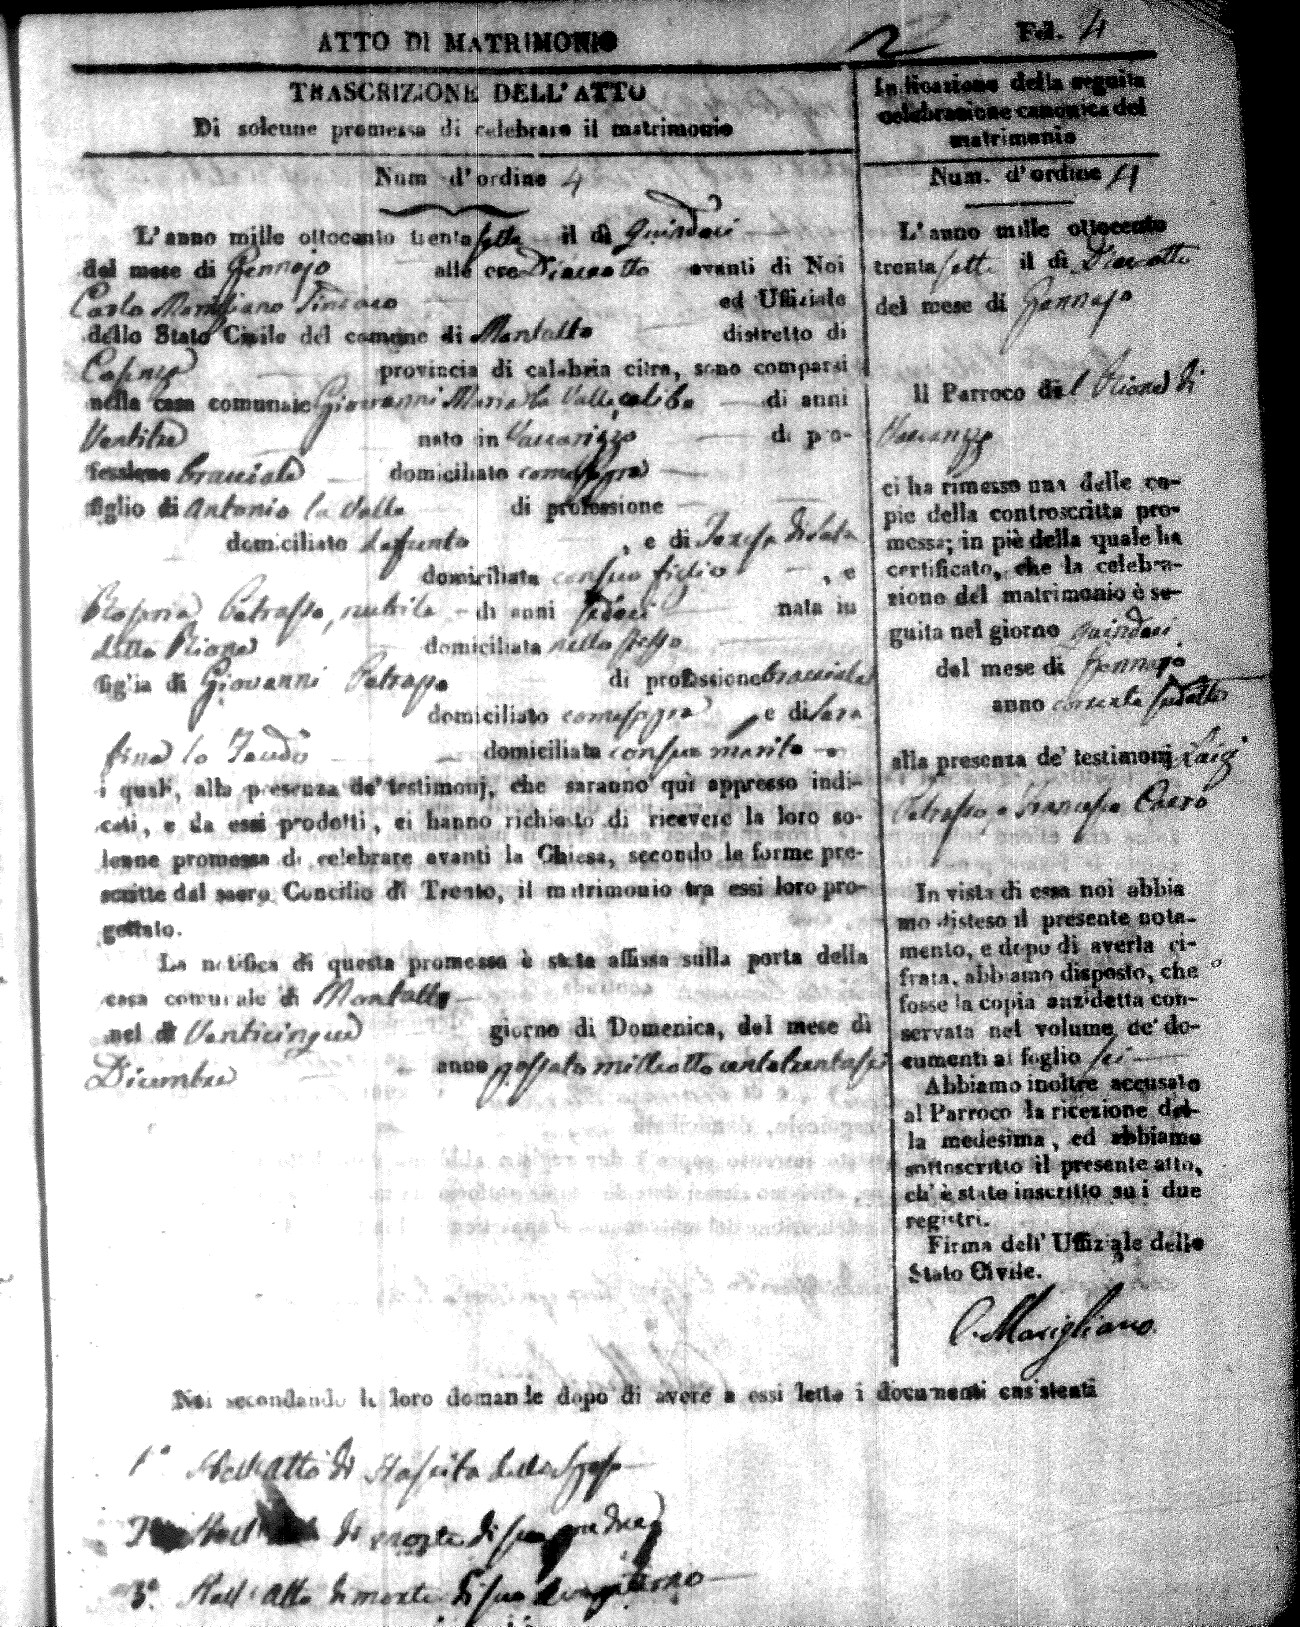 ATTO DI MATRIMONIO
Fol. 4
TRASCRIZIONE DELL'ATTO
Di solenne promessa di celebrare il matrimonio
Num d'ordine 4
L'anno mille ottocento trenta sette il dì Quindici
del mese di Gennajo alle ore Dieciotto avanti di Noi
Carlo ed Uffiziale
dello Stato Civile del comune di Montalto distretto di
Cosenza provincia di calabria citra, sono comparsi
nella casa comunale Giovanni Maria la Valle, celibe di anni
Ventitre nato in Vaccarizzo di pro-
fessione bracciale domiciliato come sopra
figlio di Antonio la Valle di professione
domiciliato defunto, e di
domiciliata con suo figlio, e
Petrasso, nubile di anni sedici nata in
detto Rione domiciliata nello stesso
figlia di Giovanni Petrasso di professione bracciale
domiciliato come sopra e di Sera
fina lo domiciliata con suo marito
i quali, alla presenza de' testimonj, che saranno quì appresso indi-
cati, e da essi prodotti, ci hanno richiesto di ricevere la loro so-
lenne promessa di celebrare avanti la Chiesa, secondo le forme pre-
scritte dal sacro Concilio di Trento, il matrimonio tra essi loro pro-
gettato.
La notifica di questa promessa è stata affissa sulla porta della
casa comunale di Montalto
nel dì Venticinque giorno di Domenica, del mese di
Dicembre anno passato milleottocentotrentasei
In licazione della seguita
celebrazione canonica del
matrimonio
Num. d'ordine 4
L'anno mille ottocento
trenta sette il dì Dieciotto
del mese di Gennajo
Il Parroco del Rione di
Vaccarizzo
ci ha rimesso una delle co-
pie della controscritta pro-
messa; in piè della quale ha
certificato, che la celebra-
zione del matrimonio è se-
guita nel giorno quindici
del mese di Gennajo
anno corrente sudetto
alla presenza de' testimonj Luigi
Petrasso e Francesco
In vista di essa noi abbia
mo disteso il presente nota-
mento, e dopo di averla ci-
frata, abbiamo disposto, che
fosse la copia anzidetta con-
servata nel volume de' do-
cumenti al foglio sei
Abbiamo inoltre accusato
al Parroco la ricezione del-
la medesima, ed abbiamo
sottoscritto il presente atto,
ch'è stato inscritto su i due
registri.
Firma dell' Uffiziale dello
Stato Civile.
C. Marigliano
Noi secondando le loro domande dopo di avere a essi letto i documenti consistenti
1° Nell'atto di nascita dello sposo
2° di morte di suo padre
3° Nell'atto di morte di suo avo paterno